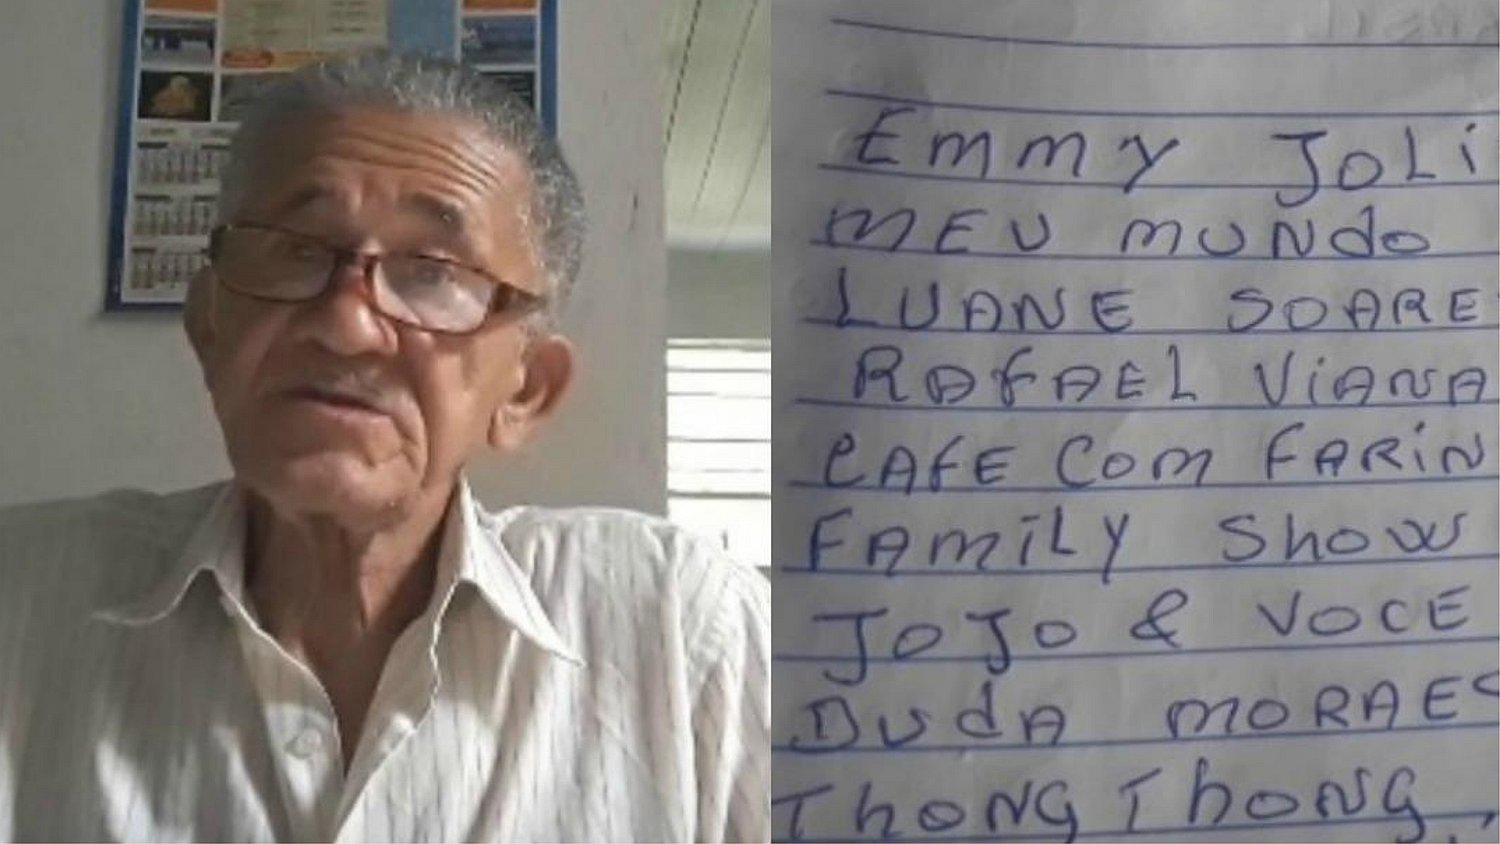 Emmy JoLi
MEU MUNdo
LUANE SOARE
RAfAEL ViANA
CAFE Com FARiN
FAmiLY Show
JoJo & VOCE
DUdA MORAES
ThoNG ThoNG